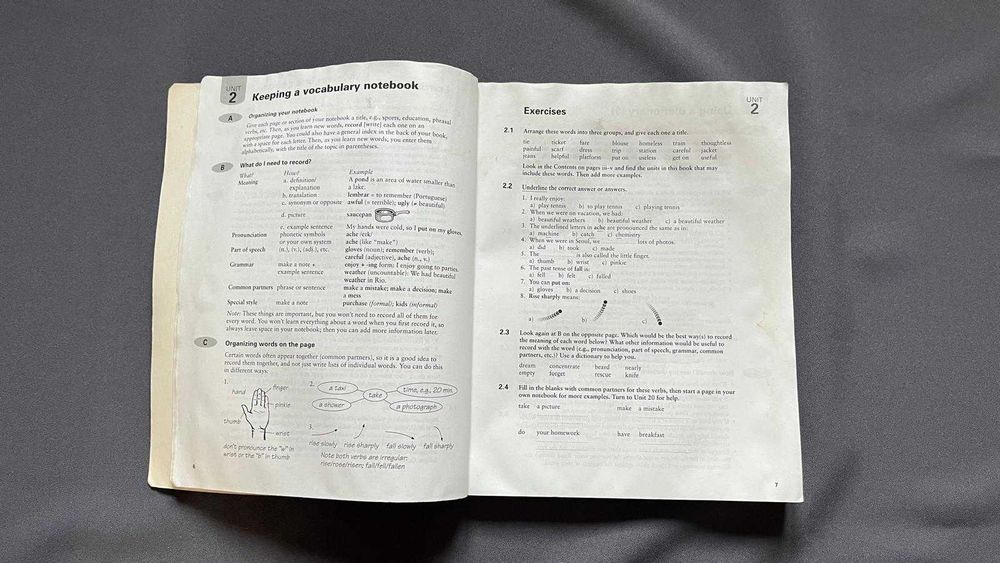 UNIT
2
Keeping a vocabulary notebook
A
Organizing your notebook
Give each page or section of your notebook a title, e.g., sports, education, phrasal
verbs, etc. Then, as you learn new words, record [write] each one on an
appropriate page. You could also have a general index in the back of your book,
with a space for each letter. Then, as you learn new words, you enter them
alphabetically, with the title of the topic in parentheses.
B
What do I need to record?
What? How? Example
Meaning a. definition/ A pond is an area of water smaller than
explanation a lake.
b. translation lembrar = to remember (Portuguese)
c. synonym or opposite awful (= terrible); ugly (≠ beautiful)
d. picture saucepan
e. example sentence My hands were cold, so I put on my gloves.
Pronunciation phonetic symbols ache /eɪk/
or your own system ache (like "make")
Part of speech (n.), (v.), (adj.), etc. gloves (noun); remember (verb);
careful (adjective), ache (n., v.)
Grammar make a note + enjoy + -ing form: I enjoy going to parties.
example sentence weather (uncountable): We had beautiful
weather in Rio.
Common partners phrase or sentence make a mistake; make a decision; make
a mess
Special style make a note purchase (formal); kids (informal)
Note: These things are important, but you won't need to record all of them for
every word. You won't learn everything about a word when you first record it, so
always leave space in your notebook; then you can add more information later.
C
Organizing words on the page
Certain words often appear together (common partners), so it is a good idea to
record them together, and not just write lists of individual words. You can do this
in different ways:
1.
hand
finger
pinkie
thumb
wrist
don't pronounce the "w" in
wrist or the "b" in thumb
2.
a taxi
time, e.g., 20 min.
take
a shower
a photograph
3.
rise slowly rise sharply fall slowly fall sharply
Note both verbs are irregular:
rise/rose/risen; fall/fell/fallen
6
UNIT
2
Exercises
2.1 Arrange these words into three groups, and give each one a title.
tie ticket fare blouse homeless train thoughtless
painful scarf dress trip station careful jacket
jeans helpful platform put on useless get on useful
Look in the Contents on pages iii–v and find the units in this book that may
include these words. Then add more examples.
2.2 Underline the correct answer or answers.
1. I really enjoy:
a) play tennis b) to play tennis c) playing tennis
2. When we were on vacation, we had:
a) beautiful weathers b) beautiful weather c) a beautiful weather
3. The underlined letters in ache are pronounced the same as in:
a) machine b) catch c) chemistry
4. When we were in Seoul, we ______ lots of photos.
a) did b) took c) made
5. The ______ is also called the little finger.
a) thumb b) wrist c) pinkie
6. The past tense of fall is:
a) fell b) felt c) falled
7. You can put on:
a) gloves b) a decision c) shoes
8. Rise sharply means:
a) b) c)
2.3 Look again at B on the opposite page. Which would be the best way(s) to record
the meaning of each word below? What other information would be useful to
record with the word (e.g., pronunciation, part of speech, grammar, common
partners, etc.)? Use a dictionary to help you.
dream concentrate beard nearly
empty forget rescue knife
2.4 Fill in the blanks with common partners for these verbs, then start a page in your
own notebook for more examples. Turn to Unit 20 for help.
take a picture make a mistake
do your homework have breakfast
7